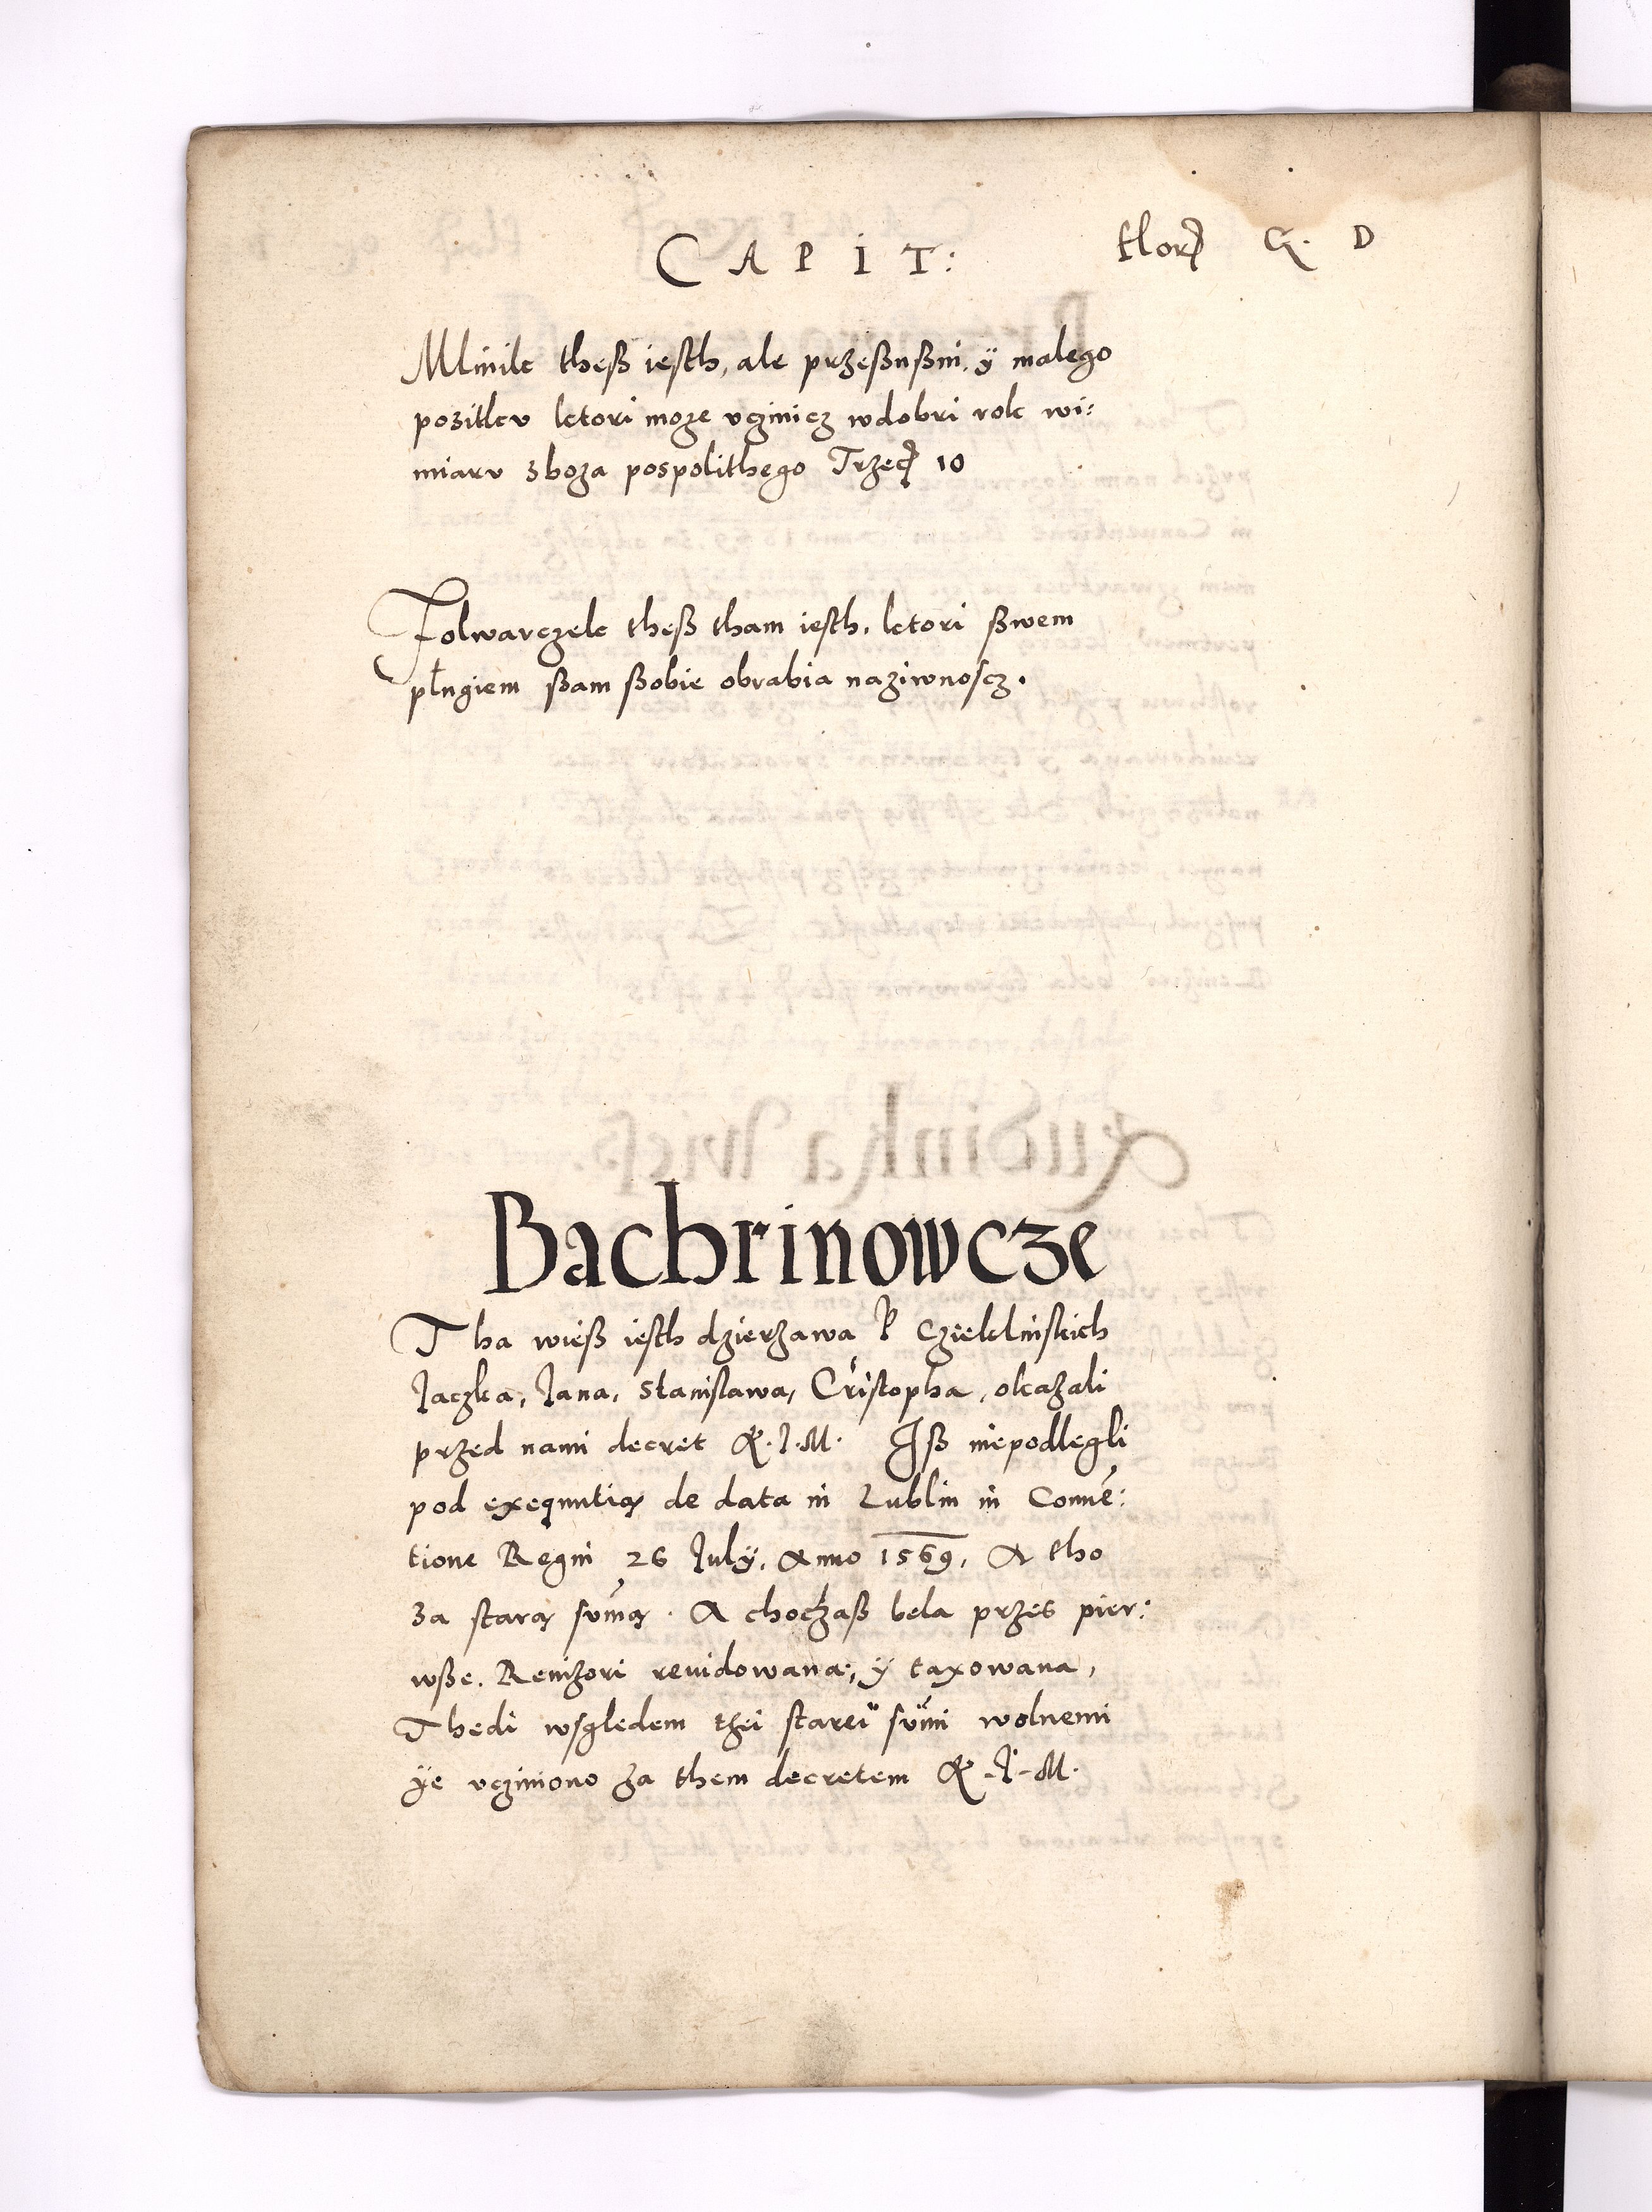 CAPIT: flor G. D
Mlinik theß iesth, ale przeßußni, ÿ malego
pozitkv ktori moze vczinicz wdobri rok wi:
miarv zboza pospolithego Trzecz 10
Folwarczek theß tham iesth, ktori ßwem
pługiem ßam ßobie obrabia naziwnoscz.
Bachrinowcze
Tha wieß iesth dzierzawa P Czieklinskich
Jaczka, Jana, Stanislawa, Cristopha, okazali
przed nami decret K.J.M. Jß niepodlegli
pod exequutią de data in Lublin in Conue:
tione Regni 26 Julÿ, Anno 1569, A tho
za starą sumą. A choczaß bela przes pier:
wße. Reuizori reuidowana, ÿ taxowana,
Thedi wsgledem thei starei sumi wolnemi
ÿe vcziniono za them decretem K.J.M.